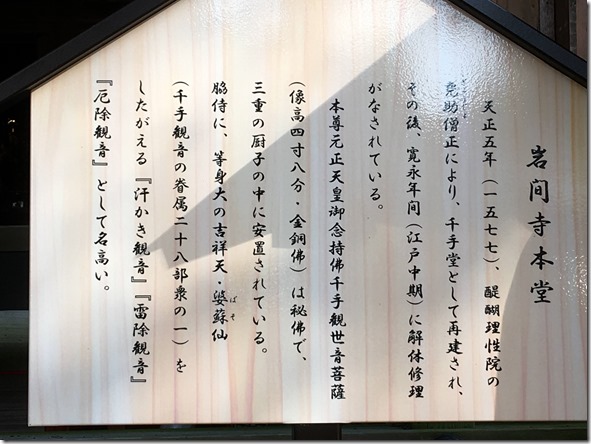 岩間寺本堂
天正五年(一五七七)、醍醐理性院の
堯助僧正により、千手堂として再建され、
その後、寛永年間(江戸中期)に解体修理
がなされている。
本尊元正天皇御念持佛千手觀世音菩薩
(像高四寸八分・金銅佛)は秘佛で、
三重の厨子の中に安置されている。
脇侍に、等身大の吉祥天・婆蘇仙
ばそ
(千手觀音の眷属二十八部衆の一)を
したがえる『汗かき觀音』『雷除觀音』
『厄除觀音』として名高い。